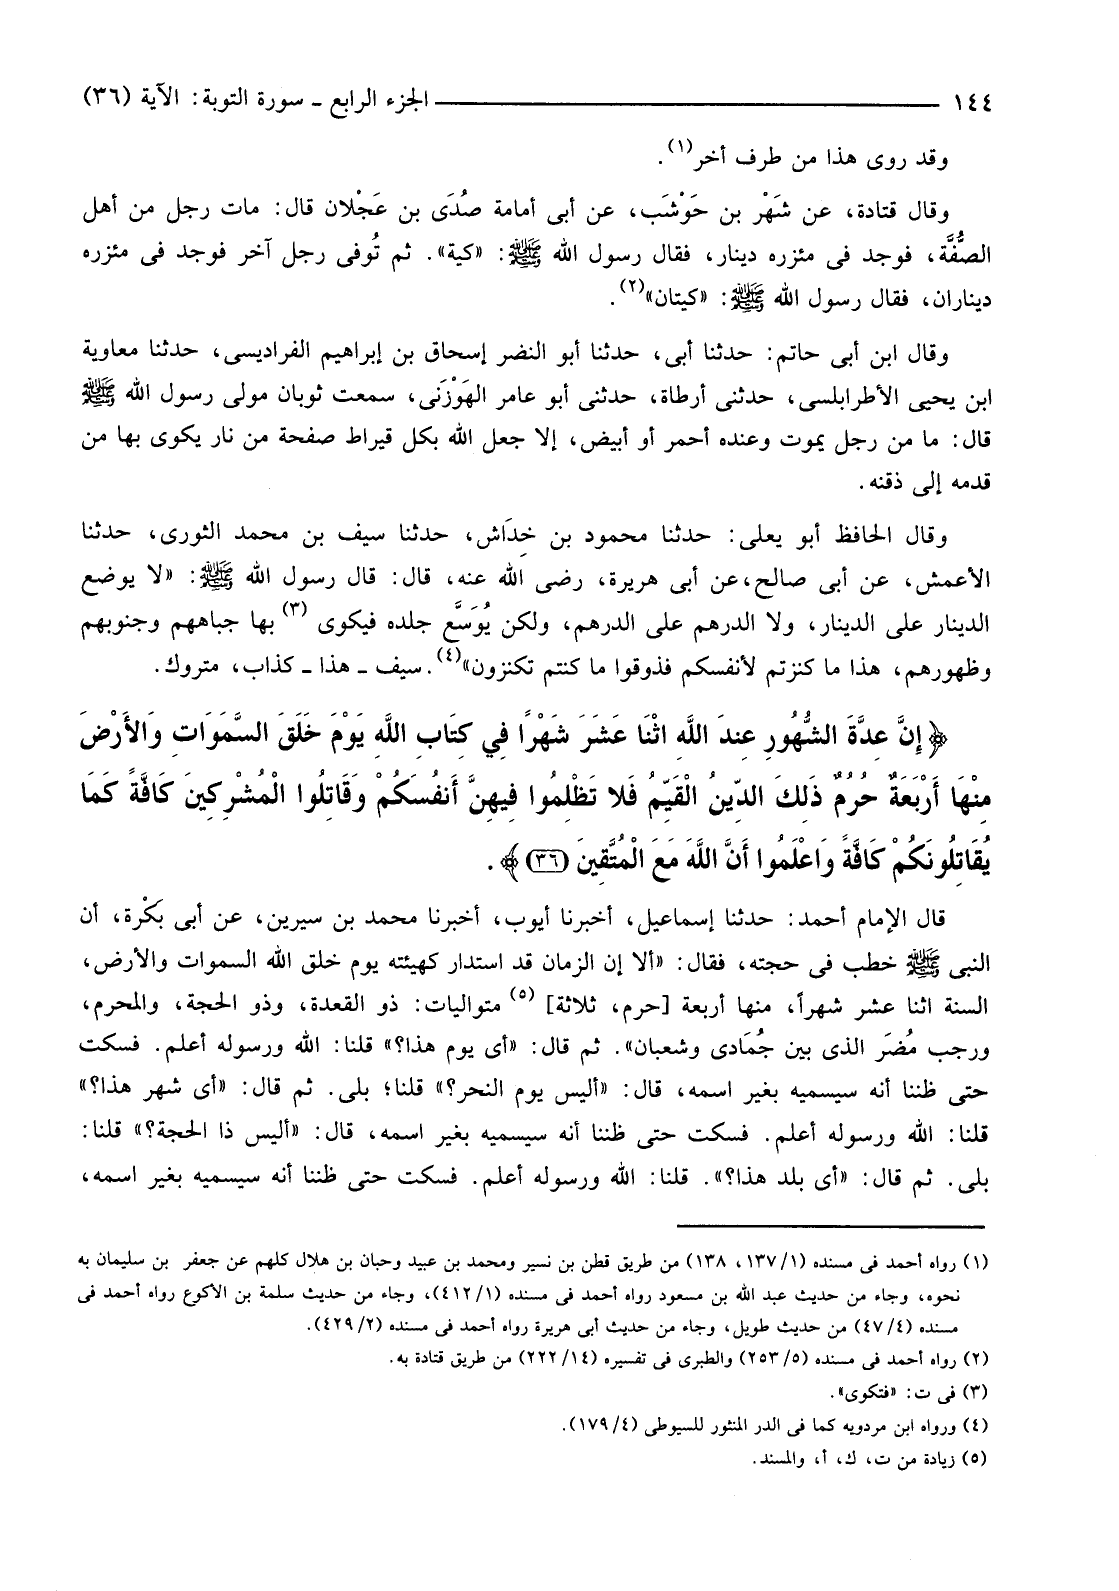 ١٤٤ ـــــ الجزء الرابع ـ سورة التوبة: الآية (٣٦)
وقد روى هذا من طرف أخر(١).
وقال قتادة، عن شَهْر بن حَوْشَب، عن أبى أمامة صُدَى بن عَجْلان قال: مات رجل من أهل
الصُّفَّة، فوجد فى مئزره دينار، فقال رسول الله ﷺ: «كية». ثم تُوفى رجل آخر فوجد فى مئزره
ديناران، فقال رسول الله ﷺ: «كيتان»(٢).
وقال ابن أبى حاتم: حدثنا أبى، حدثنا أبو النضر إسحاق بن إبراهيم الفراديسى، حدثنا معاوية
ابن يحيى الأطرابلسى، حدثنى أرطاة، حدثنى أبو عامر الهَوْزَنى، سمعت ثوبان مولى رسول الله ﷺ
قال: ما من رجل يموت وعنده أحمر أو أبيض، إلا جعل الله بكل قيراط صفحة من نار يكوى بها من
قدمه إلى ذقنه.
وقال الحافظ أبو يعلى: حدثنا محمود بن خِدَاش، حدثنا سيف بن محمد الثورى، حدثنا
الأعمش، عن أبى صالح،عن أبى هريرة، رضى الله عنه، قال: قال رسول الله ﷺ: «لا يوضع
الدينار على الدينار، ولا الدرهم على الدرهم، ولكن يُوَسَّع جلده فيكوى (٣) بها جباههم وجنوبهم
وظهورهم، هذا ما كنزتم لأنفسكم فذوقوا ما كنتم تكنزون»(٤).سيف ـ هذا ـ كذاب، متروك.
﴿إِنَّ عِدَّةَ الشُّهُورِ عِندَ اللَّهِ اثْنَا عَشَرَ شَهْرًا فِي كِتَابِ اللَّهِ يَوْمَ خَلَقَ السَّمَوَاتِ وَالأَرْضَ
مِنْهَا أَرْبَعَةٌ حُرُمٌ ذَلِكَ الدِّينُ الْقَيِّمُ فَلا تَظْلِمُوا فِيهِنَّ أَنفُسَكُمْ وَقَاتِلُوا الْمُشْرِكِينَ كَافَّةً كَمَا
يُقَاتِلُونَكُمْ كَافَّةً وَاعْلَمُوا أَنَّ اللَّهَ مَعَ الْمُتَّقِينَ (٣٦)﴾.
قال الإمام أحمد: حدثنا إسماعيل، أخبرنا أيوب، أخبرنا محمد بن سيرين، عن أبى بَكْرة، أن
النبى ﷺ خطب فى حجته، فقال: «ألا إن الزمان قد استدار كهيئته يوم خلق الله السموات والأرض،
السنة اثنا عشر شهراً، منها أربعة [حرم، ثلاثة] (٥) متواليات: ذو القعدة، وذو الحجة، والمحرم،
ورجب مُضَر الذى بين جُمَادى وشعبان». ثم قال: «أى يوم هذا؟» قلنا: الله ورسوله أعلم. فسكت
حتى ظننا أنه سيسميه بغير اسمه، قال: «أليس يوم النحر؟» قلنا؛ بلى. ثم قال: «أى شهر هذا؟»
قلنا: الله ورسوله أعلم. فسكت حتى ظننا أنه سيسميه بغير اسمه، قال: «أليس ذا الحجة؟» قلنا:
بلى. ثم قال: «أى بلد هذا؟». قلنا: الله ورسوله أعلم. فسكت حتى ظننا أنه سيسميه بغير اسمه،
(١) رواه أحمد فى مسنده (١/ ١٣٧، ١٣٨) من طريق قطن بن نسير ومحمد بن عبيد وحبان بن هلال كلهم عن جعفر بن سليمان به
نحوه، وجاء من حديث عبد الله بن مسعود رواه أحمد فى مسنده (١/ ٤١٢)، وجاء من حديث سلمة بن الأكوع رواه أحمد فى
مسنده (٤/ ٤٧) من حديث طويل، وجاء من حديث أبى هريرة رواه أحمد فى مسنده (٢/ ٤٢٩).
(٢) رواه أحمد فى مسنده (٥/ ٢٥٣) والطبرى فى تفسيره (١٤/ ٢٢٢) من طريق قتادة به.
(٣) فى ت: «فتكوى».
(٤) ورواه ابن مردويه كما فى الدر المنثور للسيوطى (٤/ ١٧٩).
(٥) زيادة من ت، ك، أ، والمسند.